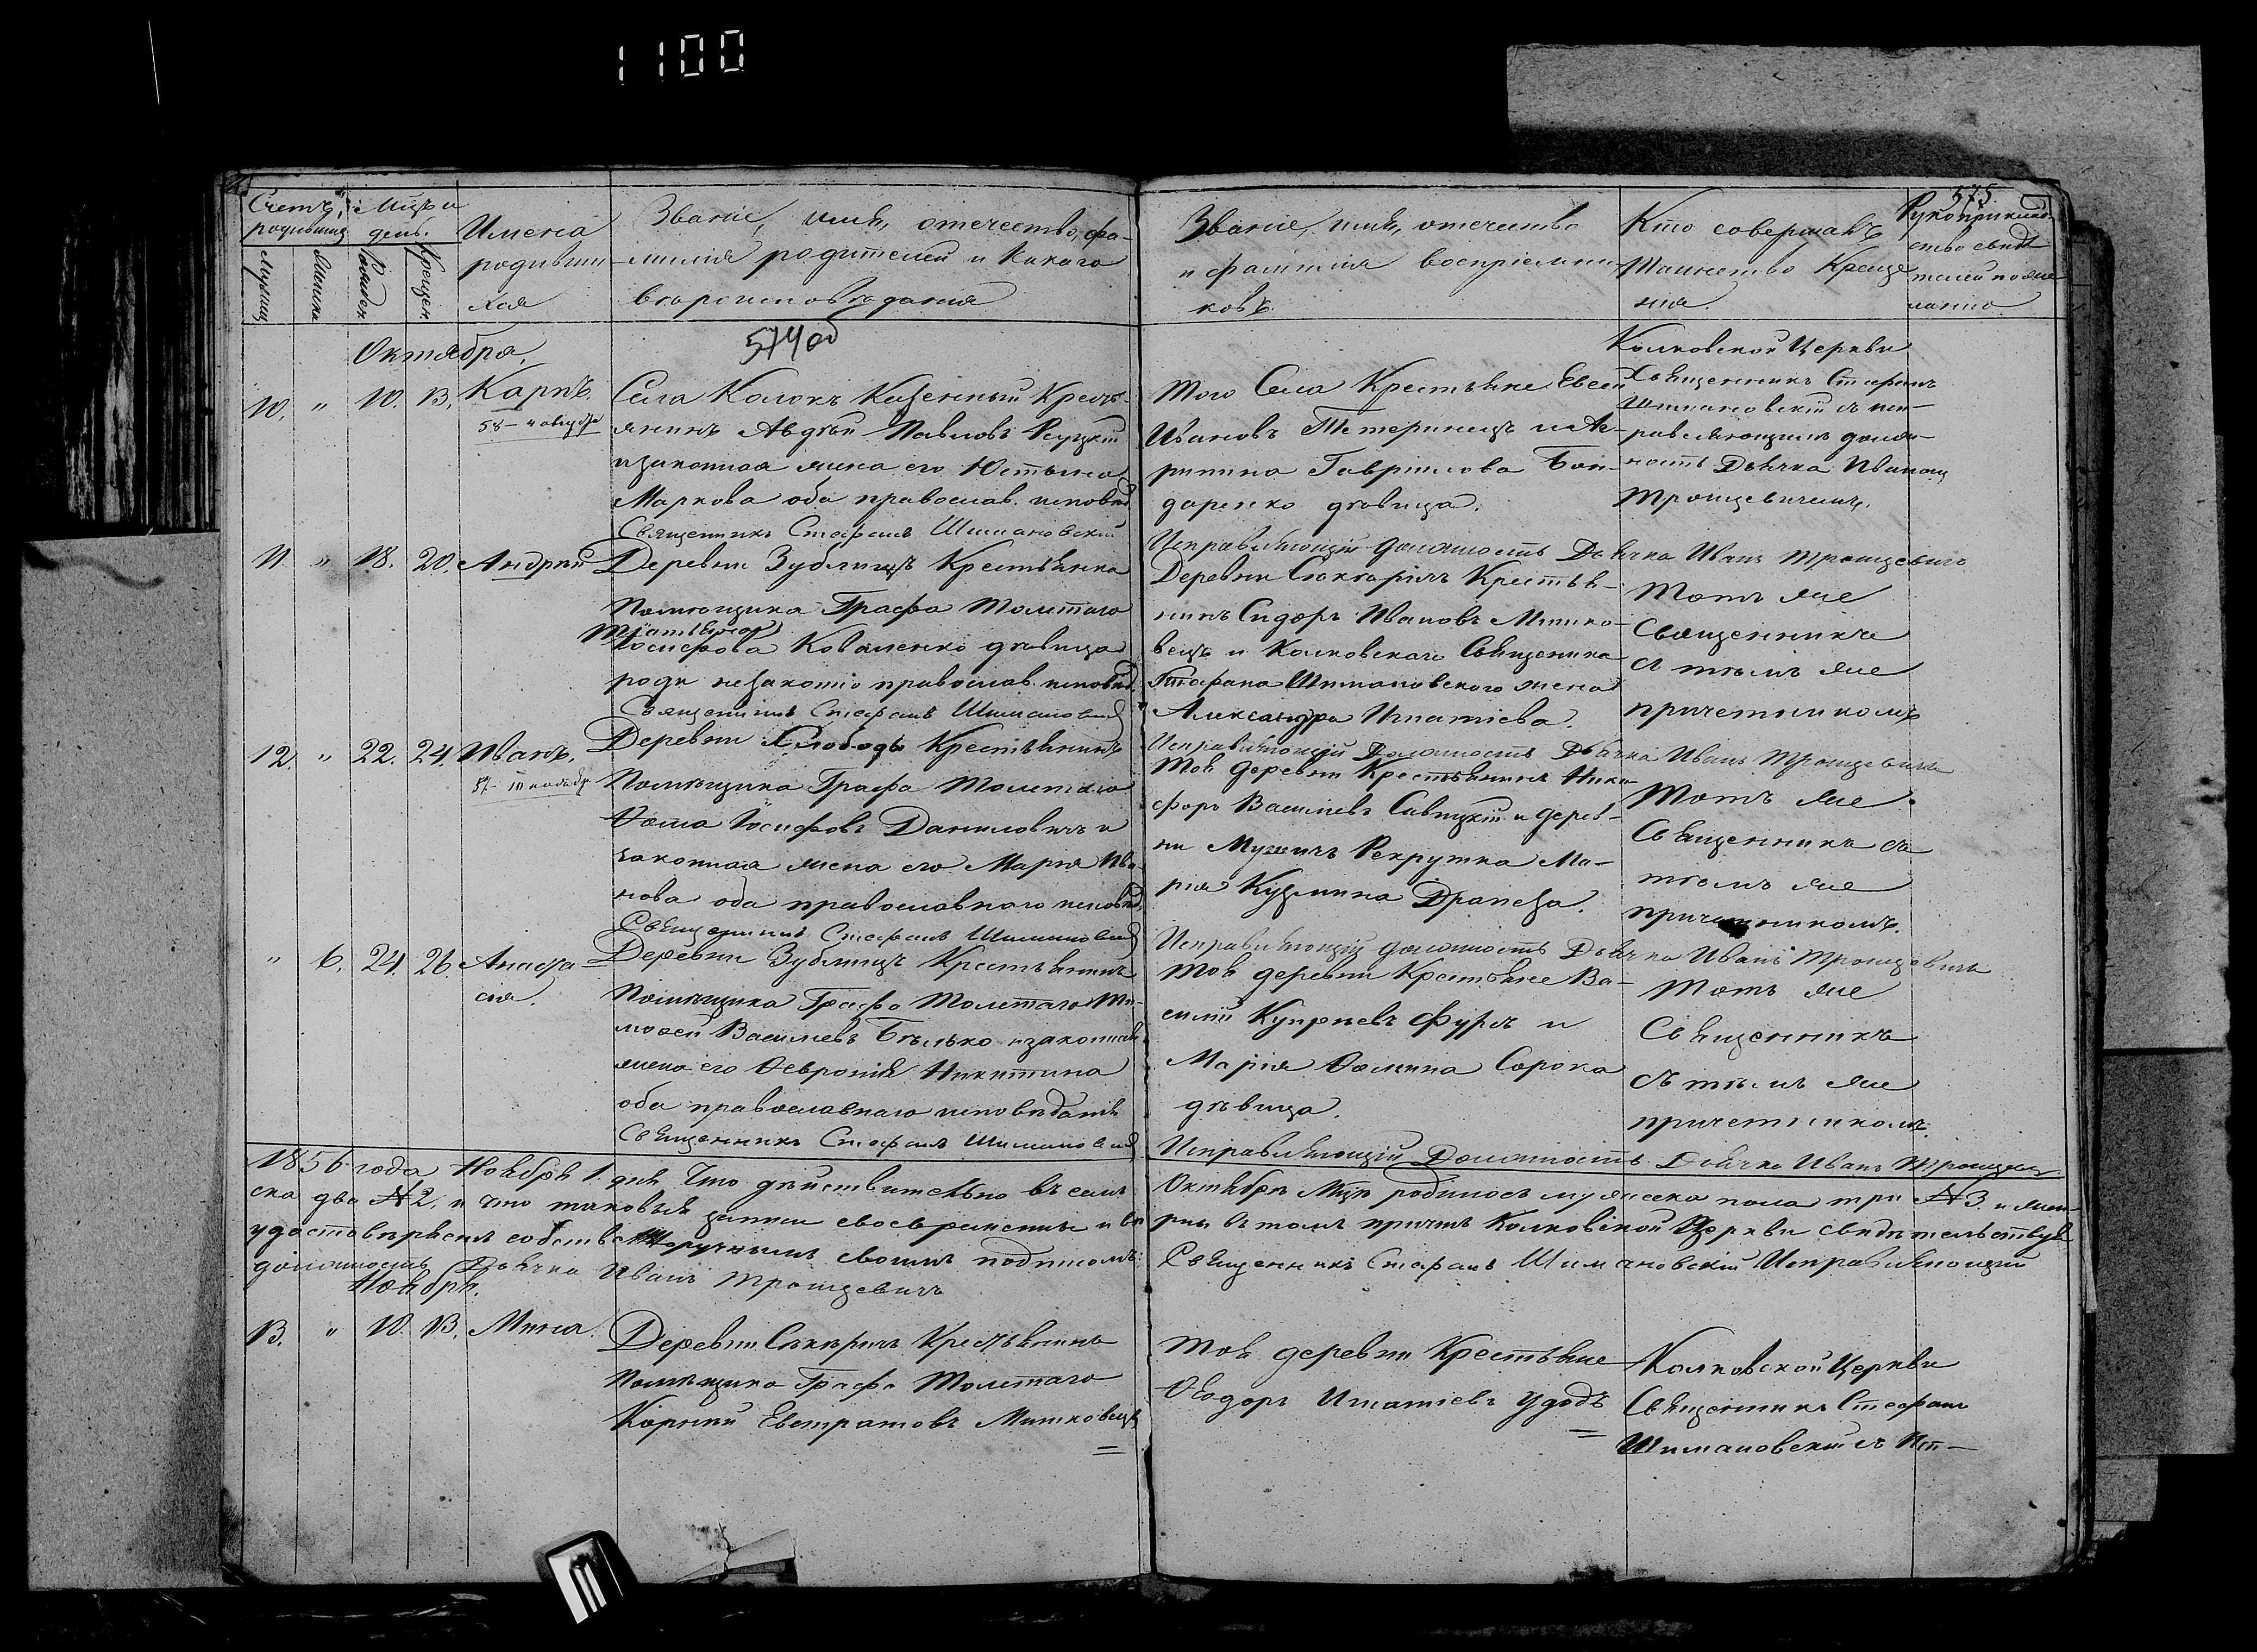 1100
575.
Счетъ родивших
Мужеск
Женска
Мцъ и день.
Рожден.
Крещен.
Имена родивши-
хся
Званіе, имя, отечество, фа-
милія родителей и какого
вѣроисповѣданія
Званіе, имя, отечество
и фамилія воспріемни-
ковъ.
Кто совершалъ
Таинство Креще
нія.
Рукоприклад-
ство свидѣ
телей по же
ланію
574 об
Октября.
10. " 10. 13. Карпъ.
Села Колокъ Казенный Кресть
янинъ Авдѣй Павловъ
и законная жена его Юстина
Маркова оба православ. исповѣд
Священникъ Стефанъ Шимановскій
Того Села Крестьяне Евсей
Ивановъ Тетеринецъ и Аг-
рипина Гавріилова Бон-
даренко дѣвица.
Исправляющій должность Дьячка Иванъ Трошцевичъ
Колковской Церкви
Священникъ Стефанъ
Шимановскій съ исп-
равляющимъ долж-
ность Дьячка Иваномъ
Трошцевичемъ.
11. " 18. 20. Андрей
Деревни Зубалищъ Крестьянка
Помѣщика Графа Толстаго
Іосифова Коваленко дѣвица
роди незаконно православ. исповѣд.
Священникъ Стефанъ Шимановскій
Деревни Сѣкѣричъ Крестья-
нинъ Сидоръ Ивановъ Митко-
вецъ и Колковскаго Священника
Стефана Шимановского жена
Александра Игнатіева.
Исправляющій Должность Дьячка Иванъ Трошцевичъ
Тотъ же
Священникъ
съ тѣмъ же
причетникомъ
12. " 22. 24. Иванъ.
Деревни Слободы Крестьянинъ
Помѣщика Графа Толстаго
Ѳома Іосифовъ Даниловичъ и
законная жена его Марія Ива-
нова оба православнаго исповѣд.
Священникъ Стефанъ Шимановскій
Той деревни Крестьянинъ Ники-
форъ Васильевъ Савицкій и дерев-
ни Рекрутка Ма-
рія Кузмина Драпеза.
Исправляющій должность Дьячка Иванъ Трошцевичъ
Тотъ же
Священникъ съ
тѣмъ же
причетникомъ.
" 6. 24. 26 Анаста-
сія.
Деревни Зубалищъ Крестьянинъ
Помѣщика Графа Толстаго Ти-
моѳей Васильевъ Бѣлько и законная
жена его Ѳевронія Никитина
оба православнаго исповѣданія
Священникъ Стефанъ Шимановскій
Той деревни Крестьяне Ва-
силій Купріевъ Фурсъ и
Марія Ѳомина Сорока
дѣвица.
Исправляющій Должность Дьячка Иванъ Трошцевичъ
Тотъ же
Священникъ
съ тѣмъ же
причетникомъ.
1856 года Ноября 1. дня Что дѣйствительно въ семъ Октябрѣ Мцѣ родилось мужеска пола три № 3. и жен-
ска два № 2. и что таковыя записи своевременны и вѣрны въ томъ причтъ Колковской Церкви свидѣтельствуя
удостовѣряемъ собственноручнымъ своимъ подписомъ: Священникъ Стефанъ Шимановскій Исправляющій
должность Дьячка Иванъ Трошцевичъ
Ноября.
13. " 10. 13. Мина.
Деревни Сѣкѣричъ Крестьянинъ
Помѣщика Графа Толстаго
Корній Евстратовъ Митковецъ
Той деревни Крестьяне
Ѳеодоръ Игнатіевъ Удодъ
Колковской Церкви
Священникъ Стефанъ
Шимановскій съ Исп-